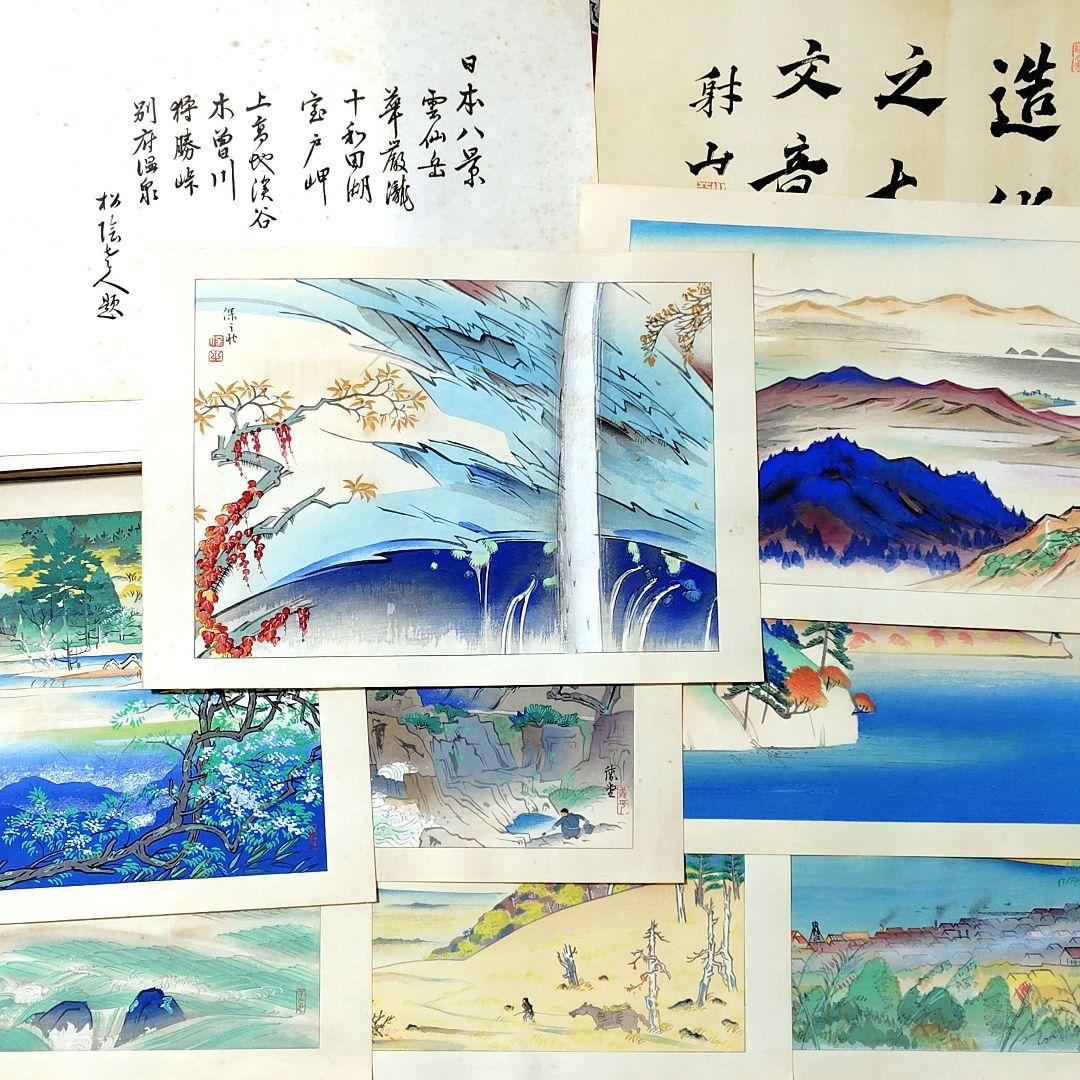 日本八景
雲仙岳
華厳瀧
十和田湖
室戸岬
上高地渓谷
木曽川
狩勝峠
別府温泉
松陰老人題
造
之
文音
射山
保之助